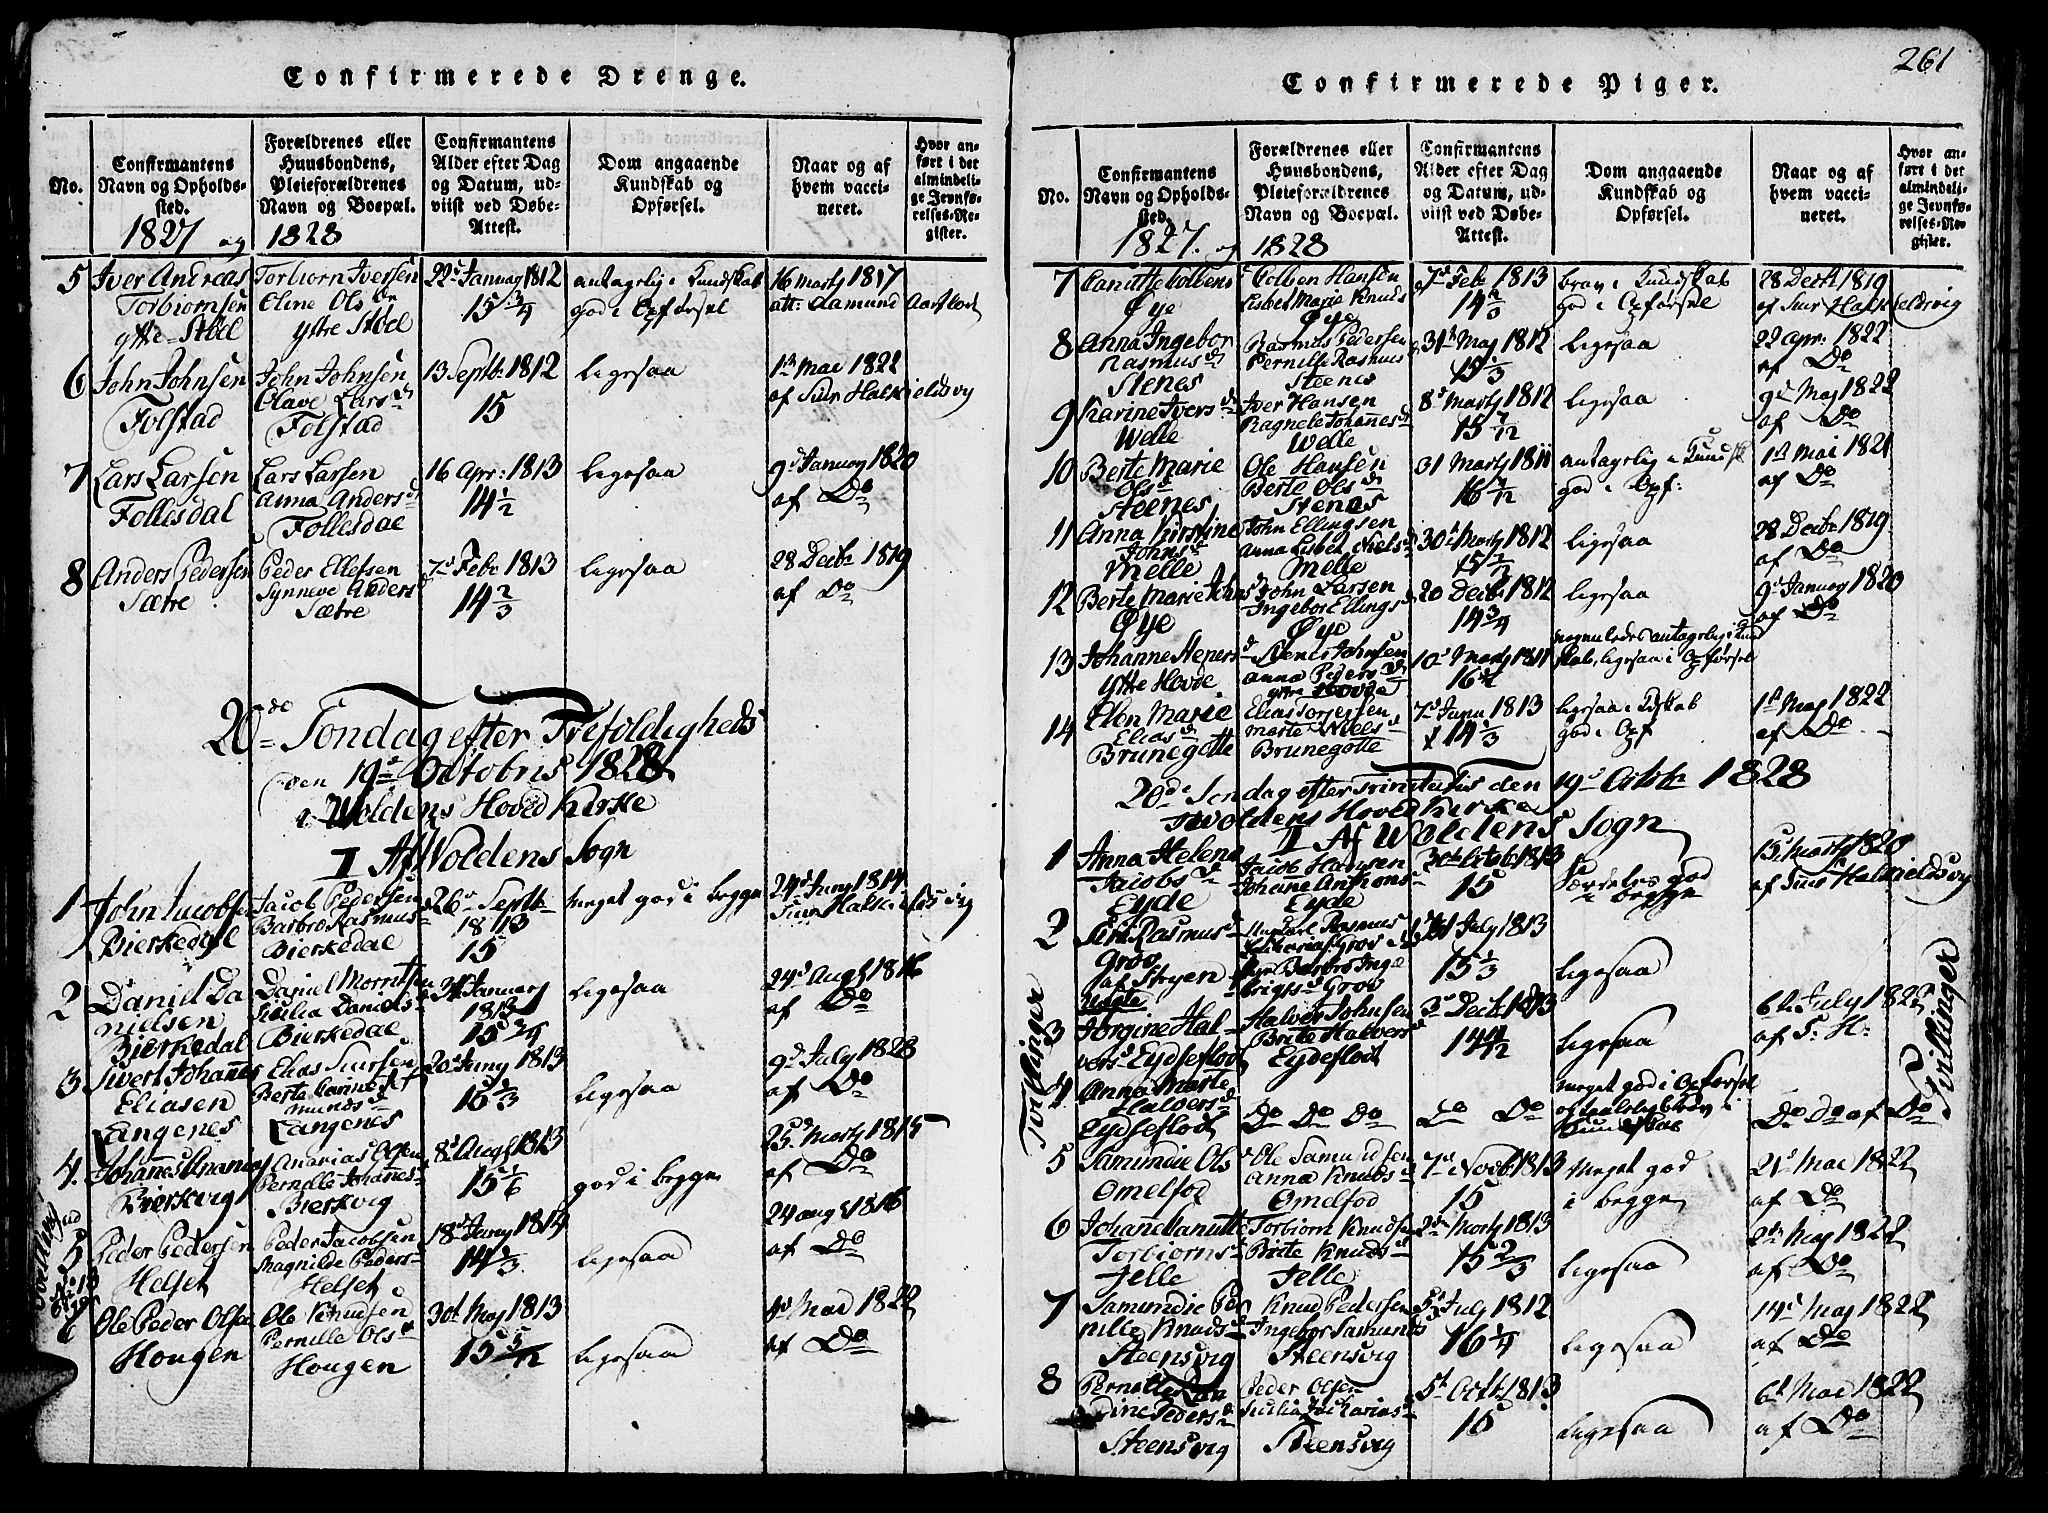 Confirmerede Drenge.
No.
Confirmantens
Navn og Opholds-
sted.
Forældrenes eller
Huusbondens,
Pleieforældrenes
Navn og Boepæl.
Confirmantens
Alder efter Dag
og Datum, ud-
viist ved Døbe-
Attest.
Dom angaaende
Kundskab og
Opførsel.
Naar og af
hvem vacci-
neret.
Hvor an-
ført i det
almindeli-
ge Jevnfø-
relses-Re-
gister.
1827 og 1828
5 Iver Andreas
Torbiørnsen
yttre Støel
Torbiorn Iversen
Eline Ols dr
yttre Støel
22d Januarj 1812
15 3/4
antagelig i Kundskab
god i Opførsel
16 Martj 1817
att: Aamund Aarskod
6 John Johnsen
Folstad
John Johnsen
Olave Lars d
Folstad
13 Septb: 1812
15
ligesaa
1te Mai 1822
af Siur Halkieldsvig
7 Lars Larsen
Follesdal
Lars Larsen
Anna Anders d
Follesdal
16 Apr: 1813
14 1/2
ligesaa
9d Januarj 1820
af Do
8 Anders Pedersen
Sætre
Peder Ellefsen
Synneve Anders d
Sætre
7d Febr 1813
14 2/3
ligesaa
28 Decbr 1819
af Do
20de Søndag efter Trefoldigheds
den 19de Octobris 1828
i Woldens Hoved Kirke
I Af Woldens Sogn
1 John Jacobsen
Bierkedal
Jacob Pedersen
Barbro Rasmus d
Bierkedal
26d Septb
1813
15
meget god i begge
24d Junj 1814
Siur Halkieldsvig
2 Daniel Da
nielsen
Bierkedal
Daniel Morritsen
Sicilia Daniels d
Bierkedal
Januarj
1813
15 3/4
ligesaa
24d Aug 1816
af Do
3 Sivert Johannes
Eliasen
Langenes
Elias Siursen
Berte
munds d
Langenes
20d Junj 1813
15 1/3
ligesaa
9d July 1828
af Do
4. Johannes
Bierkvig
Ananias Olsen
Pernille Johannes d
Bierkvig
8d Aug 1813
15 1/6
god i begge
25d Martj 1815
af Do
5 Peder Pedersen
Helset
Peder Jacobsen
Magnilde Peders d
Helset
18d Junj 1814
14 1/3
ligesaa
24 aug 1816
af Do
6 Ole Peder Olsen
Hougen
Ole Knudsen
Pernille Ols d
Hougen
30d Maj 1813
15 5/12
ligesaa
Mai 1822
af Do
261
Confirmerede Piger.
No.
Confirmantens
Navn og Opholds-
sted.
Forældrenes eller
Huusbondens,
Pleieforældrenes
Navn og Boepæl.
Confirmantens
Alder efter Dag
og Datum, ud-
viist ved Døbe-
Attest.
Dom angaaende
Kundskab og
Opførsel.
Naar og af
hvem vacci-
neret.
Hvor an-
ført i det
almindeli-
ge Jevnfø-
relses-Re-
gister.
1827. og 1828
7 Canutte Colbens d
Øye
Colben Hansen
Lisbet Marie Knuds
Øye
7d Feb 1813
14 2/3
brav i Kundskab
god i Opførsel
28 Decb 1819
af Siur Halkieldsvig
8 Anna Ingebor
Rasmus d
Stenes
Rasmus Pedersen
Pernille Rasmus d
Steenes
31te Maj 1812
15 1/3
ligesaa
22 apr: 1822
af Do
9 Karine Ivers d
Welle
Iver Hansen
Ragnele Johannes d
Welle
8d Martj 1812
15 7/12
ligesaa
9d Maj 1822
af Do
10 Berte Marie
Ols d
Steenes
Ole Hansen
Berte Ols d
Stenes
31 Martj 1811
16 7/12
antagelig i Kundsk
god i Opf:
1te Mai 1821
af Do
11 Anna Kirstine
Johns d
Melle
John Ellingsen
Anna Lisbet Niels d
Melle
30te Martj 1812
ligesaa
28 Decbr 1819
af Do
12 Berte Marie Johns d
Øye
John Larsen
Ingebor Ellings d
Øye
20 Decbr 1812
14 3/4
ligesaa
9d Januarj 1820
af Do
13 Johanne Steners d
Yttre Hovde
Stener Johnsen
Anna Peders d
yttre Hovde
10d Martj 1811
16 1/2
nogenledes antagelig i Kund
skab, ligesaa i Opførsel
14 Elen Marie
Elias d
Brunegotte
Elias Torgersen
Marte Niels d
Brunegotte
7d Janu 1813
14 1/3
ligesaa i Kdskab
god i Opf
1te Maj 1822
af Do
20de Søndag efter Trinitatis den 19d Octob 1828
i Woldens Hoved Kirke
II Af Woldens Sogn
1 Anna Helena
Jacobs d
Eyde
Jacob Hansen
Johane Anthons d
Eyde
Octob 1813
15
særdeles god
i begge
15 Martj 1820
af Siur Halkieldsvig
2 Siri Rasmus d
Grov
af Stryen
uægte
Rasmus
Grov
Barbro Inge
brigts d Grov
July 1813
15 1/3
ligesaa
Tvillinger
3 Jørgine Hal-
vers d Eydseflodt
Halver Johnsen
Brite Halvers d
Eydeflodt
3d Decb 1813
14 11/12
ligesaa
6te July 1822
af S. H:
4 Anna Marte
Halvers d
Eydseflodt
Do Do Do
Do Do
meget god i Opførsel
Kundskab
Do Do af Do
Tvillinger
5 Samundie Ols d
Omelfod
Ole Samundsen
Anna Knuds d
Omelfod
7d Novb 1813
15
meget god
i begge
21d Mai 1822
af Do
6 Johane Canutte
Torbiorns d
Jelle
Torbiorn Knudsen
Brite Knuds d
Jelle
2den Martj 1813
15 2/3
ligesaa
2den Maj 1822
af Do
7 Samundie Per
nille Knuds d
Steensvig
Knud Pedersen
Ingebor Samunds d
Steensvig
5d July 1812
16 1/4
ligesaa
14d Maj 1822
af Do
8 Pernille
dine Peders d
Steensvig
Peder Olsen
Sicilia Zacharias d
Steensvig
5te Octb 1813
15
ligesaa
6d Mai 1822
af Do